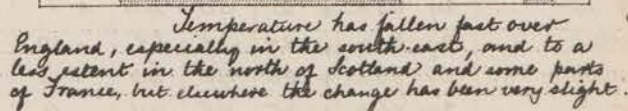 Temperature has fallen fast over
England, especially in the south-east, and to a
less extent in the north of Scotland and some parts
of France, but elsewhere the change has been very slight.